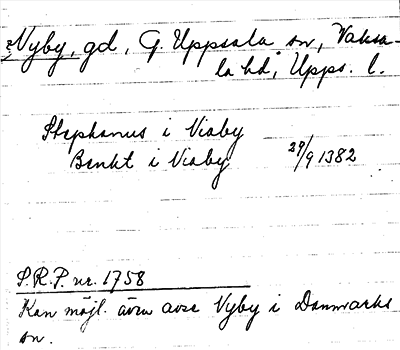 Vyby, gd, G. Uppsala sn, Vaksa-
la hd, Upps. l.
Stephanus i Viaby
Benkt i Viaby 29/9 1382
S.R.P. nr. 1758
Kan möjl. även avse Vyby i Danmarks
sn.